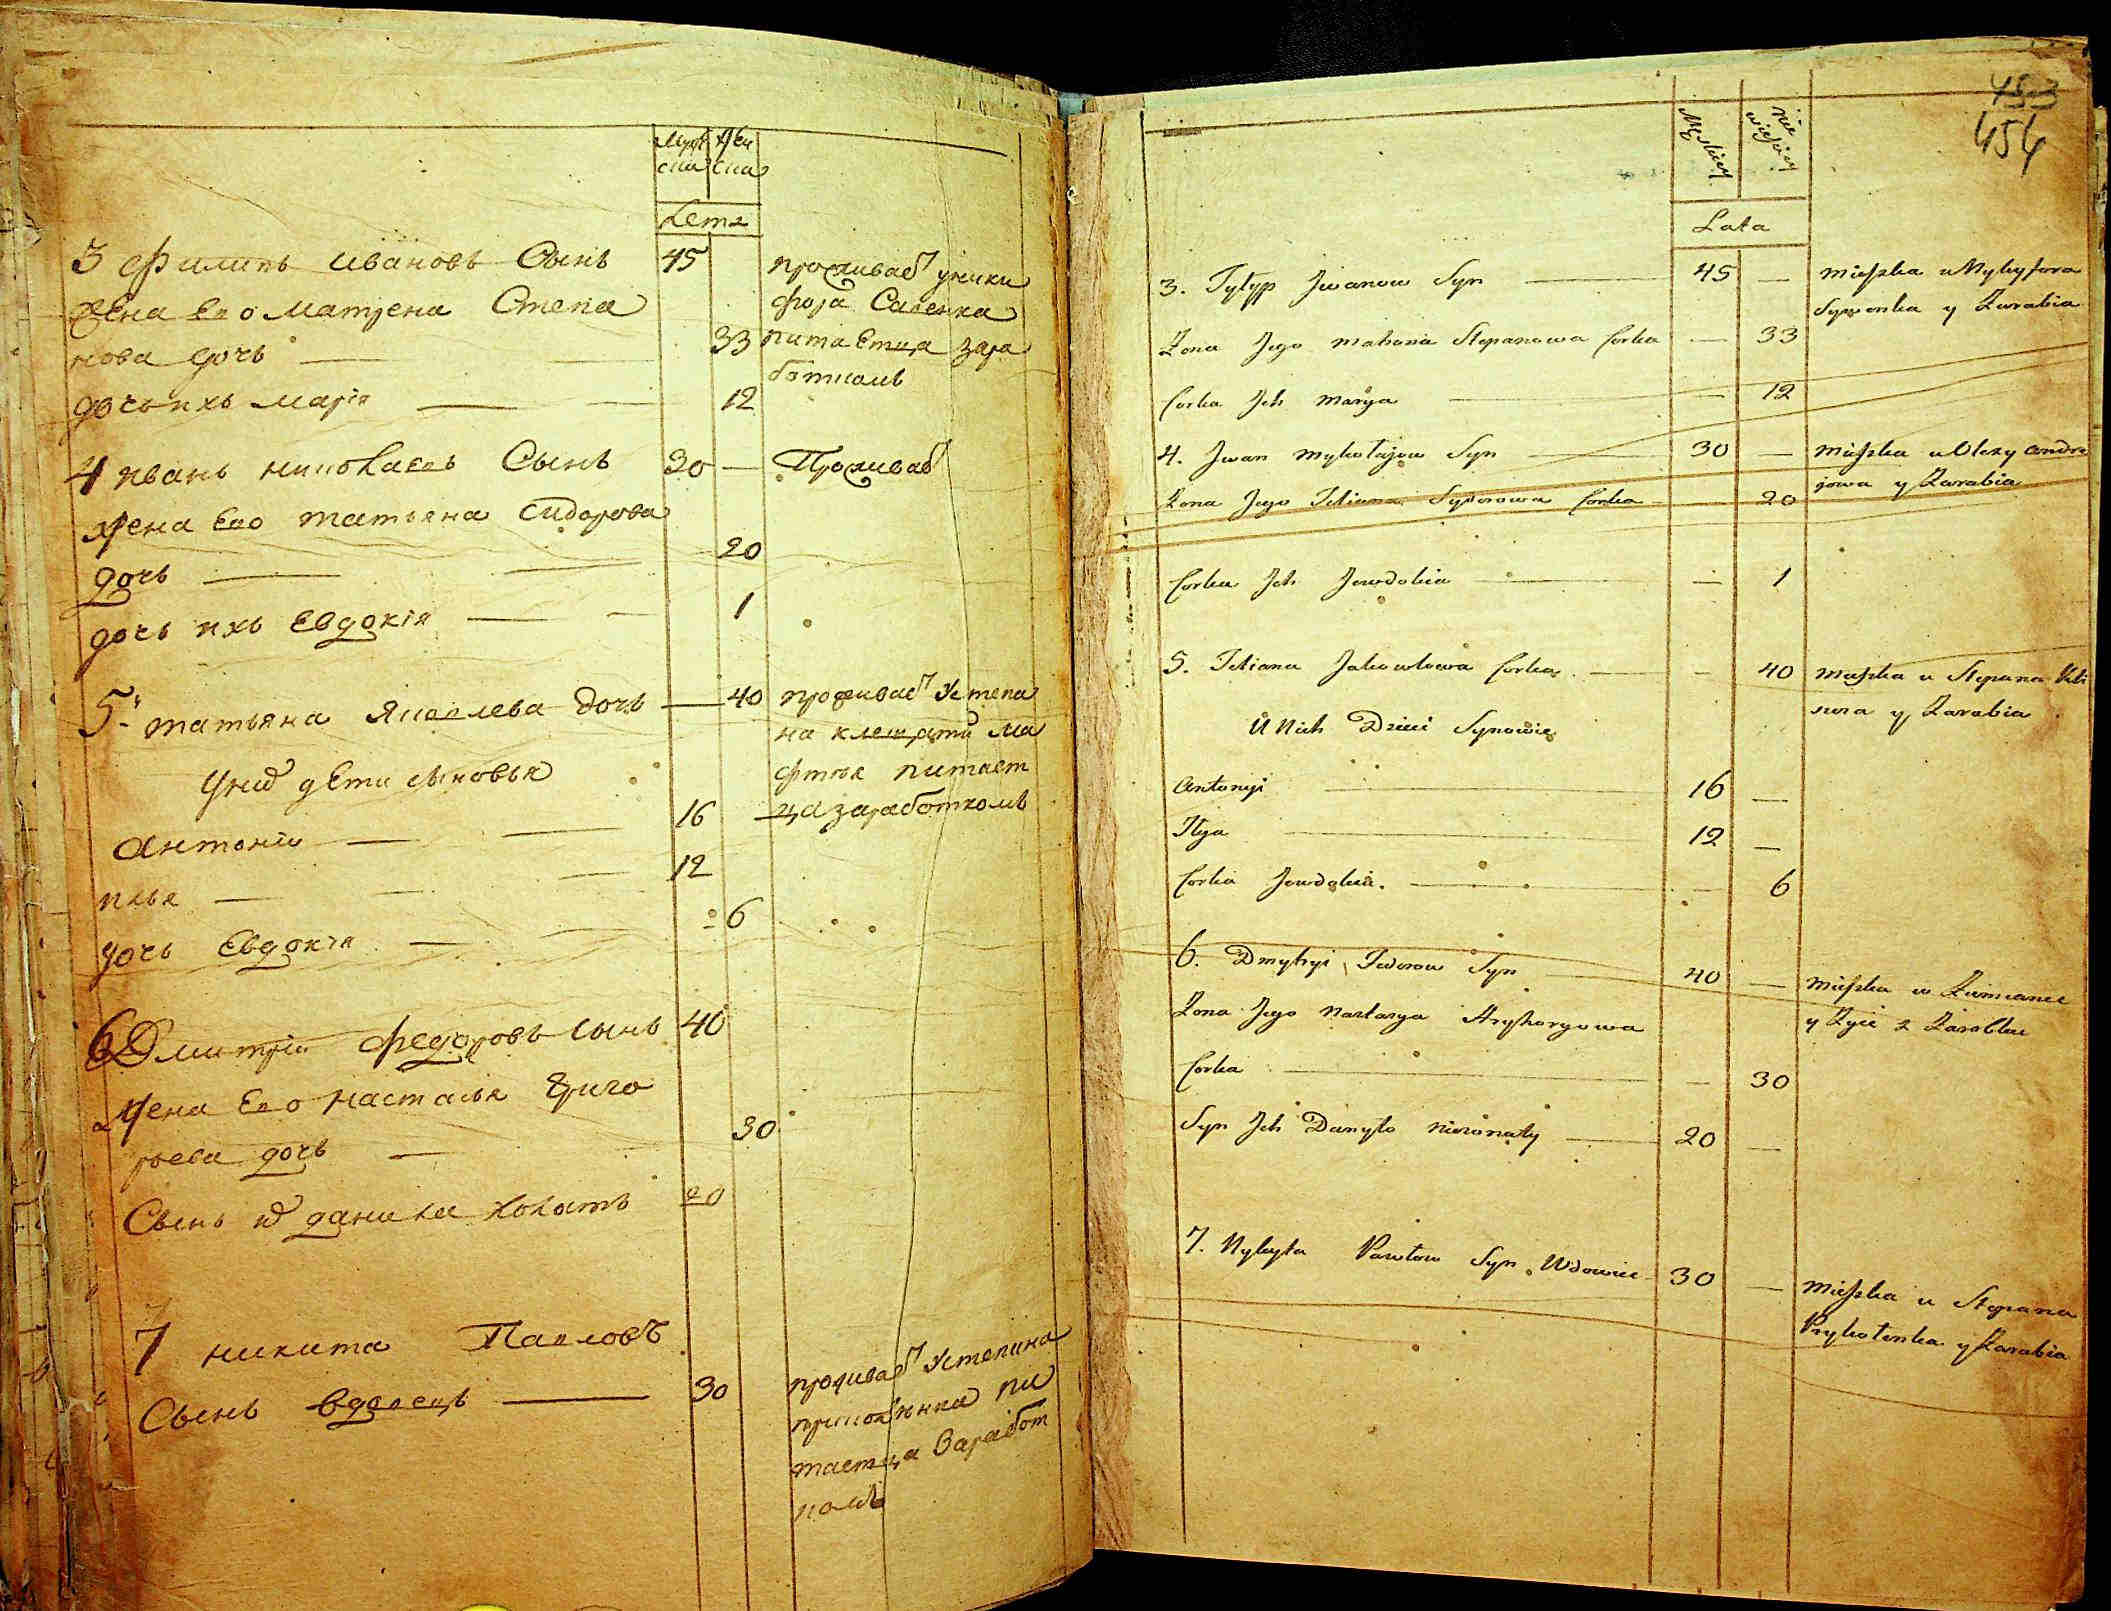 Муж Жен
ска ска
Летъ
3 Филипъ ивановъ Сынъ 45 проживаетъ
жена Его матрена Степа
нова дочь 33 питаЕтца зара
боткомъ
дочь ихъ марія 12
4 иванъ николаевъ Сынъ 30 — Проживает
жена Его татьяна сидорова
дочь 20
дочь ихъ Евдокія 1
5 татьяна Яковлева дочь — 40 проживает Устепа
на
питает
уней дЕти сыновья
ца заработкомъ
Антоній 16
илья 12
дочь Евдокія 6
6 Дмитрій Федоровъ сынъ 40
жена Его настасья Григо
рьева дочь 30
Сынъ данила холостъ 20
7 никита Павловъ
Сынъ вдовецъ 30
проживает Устепана
пи
таетца Заработ
комъ
453
454
Męskiey niewieściey
Lata
3. Fylyp Jwanow Syn 45 — Mieszka u Nykyfora
y Zarabia
Zona Jego Matrona Stepanowa Corka — 33
Corka Jch Marya — 12
4. Jwan Mykołajow Syn 30 — Mieszka u Olexy Andre
jowa y Zarabia
Zona Jego Tetiana Sydorowa Corka 20
Corka Jch Jewdokia — 1
5. Tetiana Jakowlowa Corka — 40 Mieszka u Stepana
y Zarabia
U Nich Dzieci Synowie
Antonyi 16 —
Ilya 12 —
Corka Jewdokia — 6
6. Dmytryi Fedorow Syn 40 — Mieszka w
y Zyie z Zarobku
Zona Jego Nastasya Hryhoryowa
Corka — 30
Syn Jch Danyło nieżonaty 20 —
7. Nykyta Pawłow Syn Wdowiec 30 — Mieszka u Stepana
Prykotenka y Zarabia